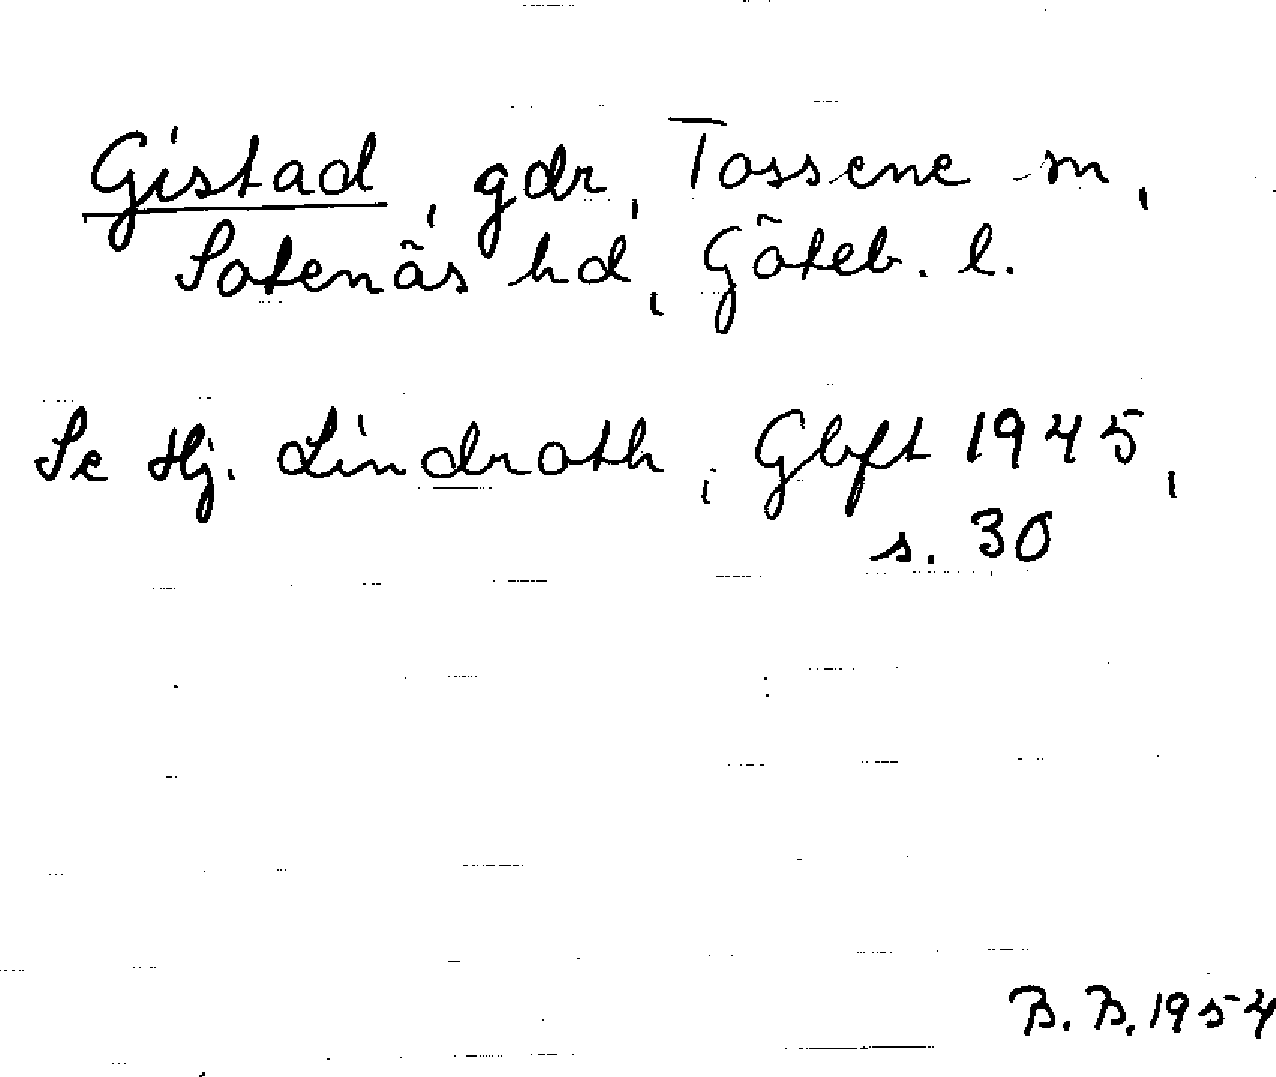 Gistad, gdr, Tossene sn,
Sotenäs hd, Göteb. l.
Se Hj. Lindroth, Gbft 1945,
s. 30
B. B. 1954